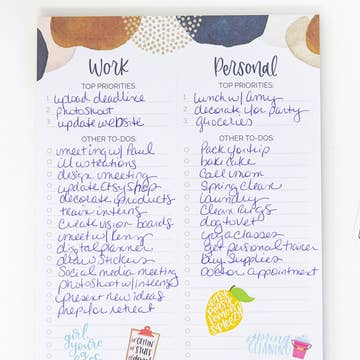 Work
TOP PRIORITIES:
1. upload deadline
2. photoshoot
3. update website
OTHER TO-DOS:
meeting w/ Paul
illustrations
design meeting
update Etsy shop
decorate products
train interns
create vision boards
meet w/ Kenny
digital planner
draw stickers
Social media meeting
photoshoot w/ interns
present new ideas
prep for retreat
girl
you're
Personal
TOP PRIORITIES:
1. lunch w/ Amy
2. decorate for party
3. groceries
OTHER TO-DOS:
Pack for trip
bake cake
Call mom
Spring clean
laundry
Clean Rugs
dog to vet
yoga classes
get personal trainer
buy supplies
Doctor appointment
spring
CLEANING